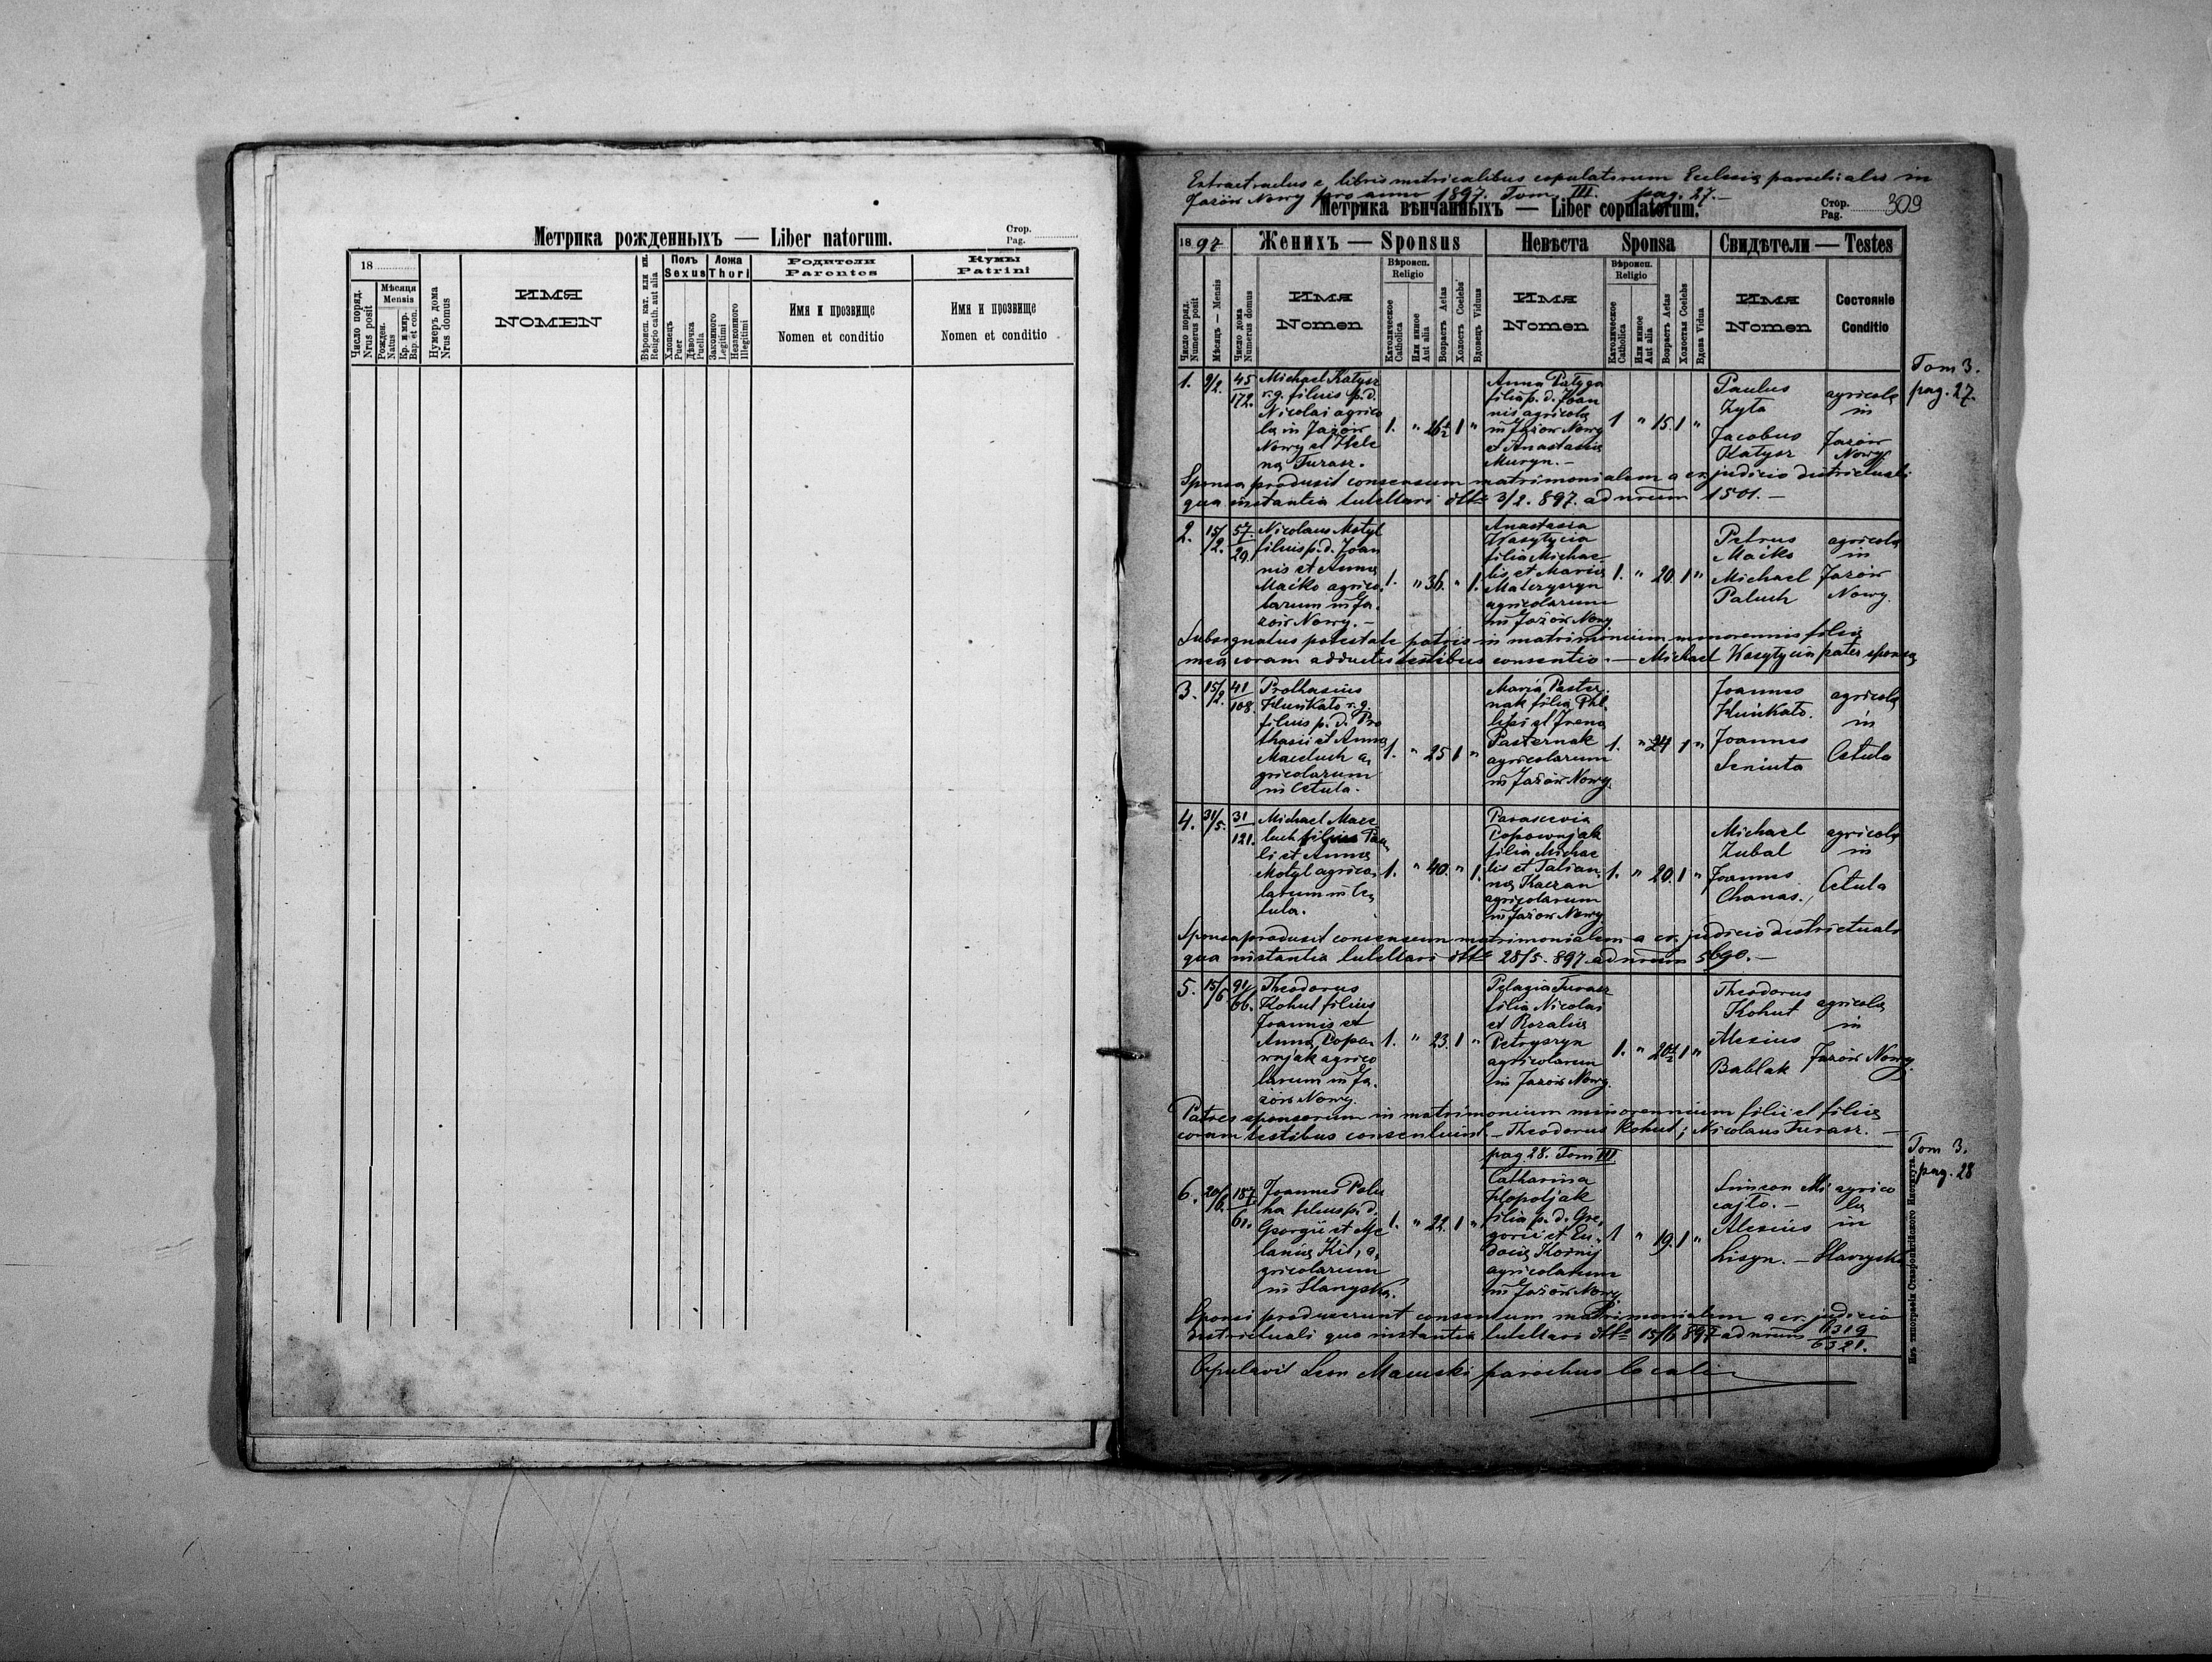 Метрика рожденныхъ — Liber natorum.
Стор.
Pag.
18
Число поряд.
Nrus posit
Мѣсяця
Mensis
Рожден.
Natus
Кр. и мир.
Bap. et con.
Нумеръ дома
Nrus domus
ИМЯ
NOMEN
Вѣроисп. кат. или ин.
Religio cath. aut alia
Полъ
Sexus
Хлопецъ
Puer
Дѣвочка
Puella
Ложа
Thori
Законного
Legitimi
Незаконного
Illegitimi
Родители
Parentes
Имя и прозвище
Nomen et conditio
Кумы
Patrini
Имя и прозвище
Nomen et conditio
Extractus e libris metricalibus copulatorum Ecclesię parochialis in
Jazów Nowy pro anno 1897. Tom III. pag. 27.—
Метрика вѣнчанныхъ — Liber copulatorum.
Стор.
Pag. 309
1897
Женихъ — Sponsus
Невѣста Sponsa
Свидѣтели — Testes
Число поряд.
Numerus posit
Мѣсяць — Mensis
Число дома
Numerus domus
Имя
Nomen
Вѣроисп.
Religio
Католическое
Catholica
Или инное
Aut alia
Возрастъ Aetas
Холостъ Coelebs
Вдовець Viduus
Имя
Nomen
Вѣроисп.
Religio
Католическое
Catholica
Или инное
Aut alia
Возрастъ Aetas
Холостая Coelebs
Вдова Vidua
Имя
Nomen
Состоянiе
Conditio
Tom 3.
pag. 27.
1. 9/2. 45/172.
Michael Katysz
r.g. filius p.d.
Nicolai agrico
lę in Jazów
Nowy et Hele
nę Turasz.
1. " 26½ 1 "
Anna Patyga
filia p. d. Joan
nis agricolę
in Jazów Nowy
et Anastasię
Muryn.—
1 " 15. 1 "
Paulus
Zyła
Jacobus
Katysz
agricolę
in
Jazów
Nowy.
Sponsa produxit consensum matrimonialem a cr. judicio districtuali
qua instantia tutellari dtto 3/2. 897. ad nrum 1501.—
2. 15/2. 57/29.
Nicolaus Motyl
filius p.d. Joan
nis et Annę
Maćko agrico
larum in Ja
zów Nowy.—
1. " 36. " 1.
Anastasia
Wasytycia
filia Michae
lis et Marię
Materyszyn
agricolarum
in Jazów Nowy
1. " 20. 1 "
Petrus
Maćko
Michael
Paluch
agricolę
in
Jazów
Nowy.
Subsignatus potestate patris in matrimonium minorennis filię
meę coram adductis testibus consentio.— Michael Wasytycia pater sponsę
3. 15/2. 41/108.
Prothasius
Huńkało r.g.
filius p. d. Pro
thasii et Annę
Macełuch a,
gricolarum
in Cetula.
1. " 25 1 "
Maria Paster
nak filia Phi
lipi et Irena
Pasternak
agricolarum
in Jazów Nowy.
1. " 24 1 "
Joannes
Huńkało.
Joannes
Seniuta
agricolę
in
Cetula
4. 31/5. 31/121.
Michael Mace
luch filius Pau
li et Annę
Motyl agrico,
larum in Ce
tula.
1. " 40. " 1.
Parascevia
Popownjak
filia Michae
lis et Tatian
nę Kaczan
agricolarum
in Jazów Nowy.
1. " 20. 1 "
Michael
Zubal
Joannes
Chanas.
agricolę
in
Cetula
Sponsa produxit consensum matrimonialem a cr. judicio districtuali
qua instantia tutellari dtto 28/5. 897 ad nrum 5690.—
5. 15/6 94/66.
Theodorus
Kohut filius
Joannis et
Annę Popo
wnjak agrico
larum in Ja.
zów Nowy.
1. " 23. 1 "
Pelagia Turasz
filia Nicolai
et Rozalię
Petryszyn
agricolarum
in Jazów Nowy.
1. " 20½ 1 "
Theodorus
Kohut
Alexius
Bablak
agricolę
in
Jazów Nowy.
Patres sponsorum in matrimonium minorennium filii et filię
coram testibus consentiunt.— Theodorus Kohut; Nicolaus Turasz.—
pag. 28. Tom III
Tom 3.
pag. 28
6. 20/6. 187/61.
Joannes Palu
ha filius p. d.
Georgii et Me
lanię Kit, a,
gricolarum
in
1. " 22. 1 "
Catharina
Hopoljak
filia p. d. Gre,
gorii et Eu,
docię Kornij
agricolarum
in Jazów Nowy.
1 " 19. 1 "
Simeon Mi
cajło.—
Alexius
Lisyn.—
agrico
lę
in
Sponsi produxerunt consensum matrimonialem a cr. judicio
districtuali qua instantia tutellari dtto 15/6 897 ad nrum 6319/6321.
Copulavit Leon parochus locali
Изъ типографiи Ставропигiйского Института.